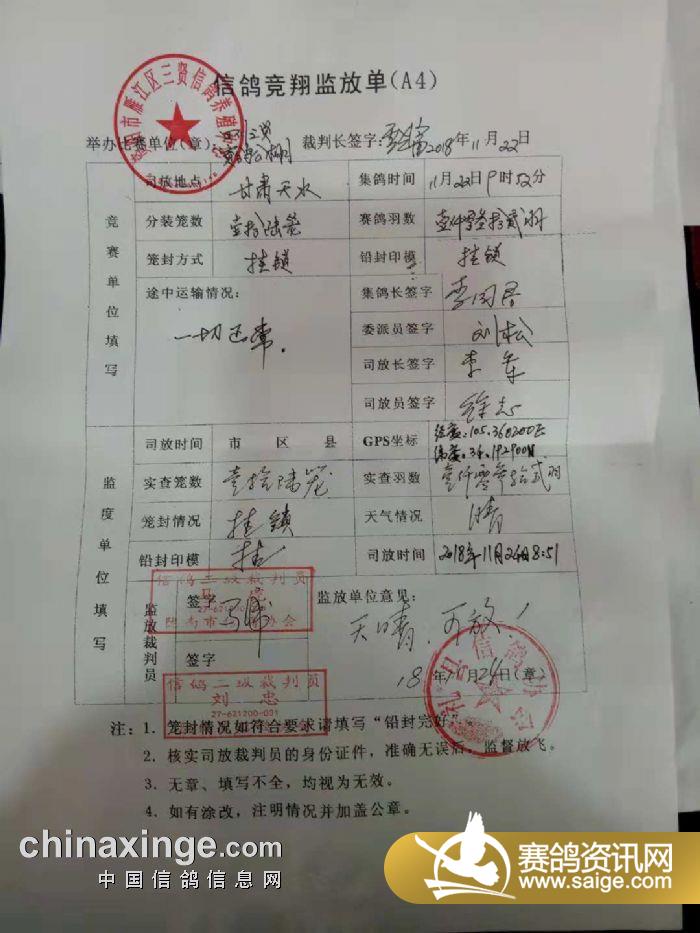 信鸽竞翔监放单(A4)
举办比赛单位(章): 裁判长签字: 2018年11月22日
竞赛单位填写
司放地点 甘肃天水 集鸽时间 11月22日9时52分
分装笼数 壹拾陆笼 赛鸽羽数 壹仟零叁拾贰羽
笼封方式 挂锁 铅封印模 挂锁
途中运输情况: 一切正常. 集鸽长签字 李国君
委派员签字 刘松
司放长签字 李军
司放员签字 徐志
监度单位填写
司放时间 市 区 县 GPS坐标 经度:105.360200E
纬度:34.192900N
实查笼数 壹拾陆笼 实查羽数 壹仟零叁拾贰羽
笼封情况 挂锁 天气情况 晴
铅封印模 挂 司放时间 2018年11月24日8:51
监放裁判员
签字
监放单位意见:
天晴.可放!
签字
18年11月24日(章)
信鸽二级裁判员
信鸽二级裁判员
刘忠
27-621200-001
注: 1. 笼封情况如符合要求请填写“铅封完好”
2. 核实司放裁判员的身份证件,准确无误后,监督放飞。
3. 无章、填写不全,均视为无效。
4. 如有涂改,注明情况并加盖公章。
chinaxinge.com
中国信鸽信息网
赛鸽资讯网
www.saige.com